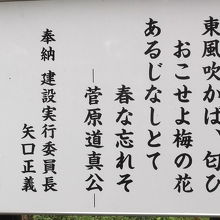 東風吹かば、匂ひ
おこせよ梅の花
あるじなしとて
春な忘れそ
―菅原道真公―
奉納 建設実行委員長
矢口正義